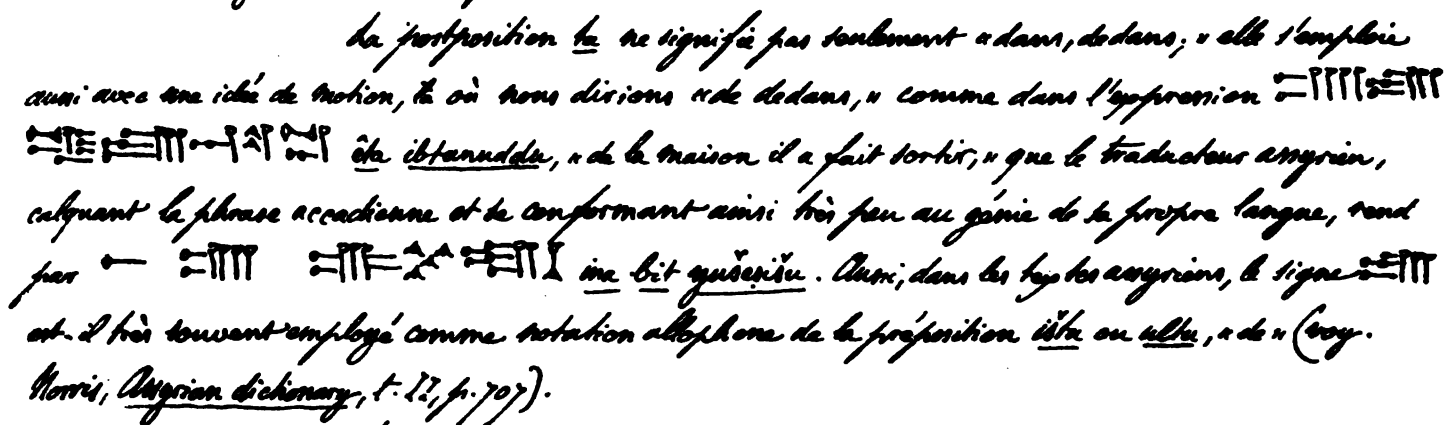 La postposition ta ne signifie pas seulement « dans, dedans; » elle s'emploie
aussi avec une idée de motion, là où nous dirions « de dedans, » comme dans l'expression 𒂍𒋫
𒅁𒋫𒀭𒌓𒁺 êta ibtanuddu, « de la maison il a fait sortir, » que le traducteur assyrien,
calquant la phrase accadienne et se conformant ainsi très peu au génie de sa propre langue, rend
par 𒀸 𒂍 ina bit yušeṣišu. Aussi, dans les textes assyriens, le signe 𒋫
est-il très souvent employé comme notation allophone de la préposition ištu ou ultu, « de » (voy.
Norris, Assyrian dictionary, t. II, p. 707).